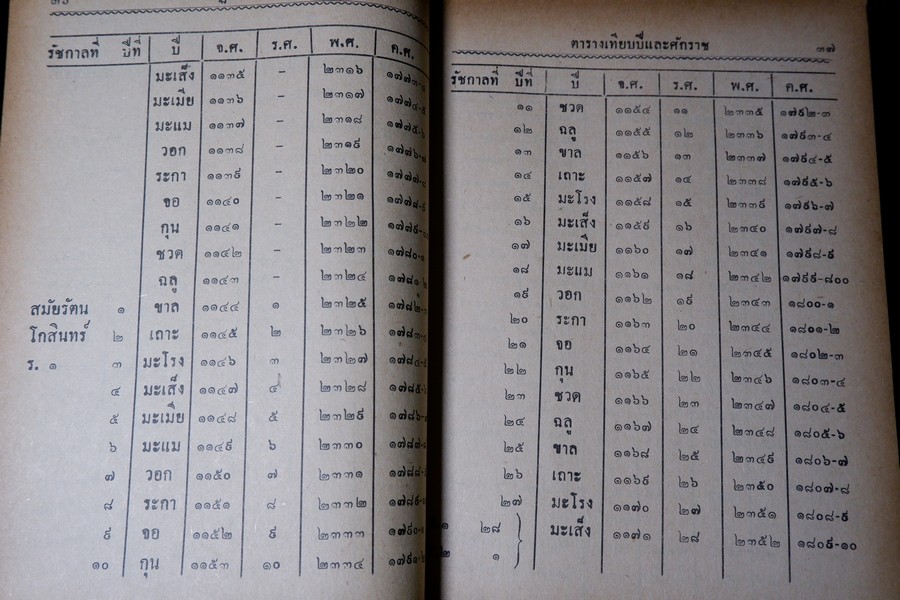 รัชกาลที่ ปีที่ ปี จ.ศ. ร.ศ. พ.ศ. ค.ศ.
มะเส็ง ๑๑๓๕ – ๒๓๑๖ ๑๗๗๓-๔
มะเมีย ๑๑๓๖ – ๒๓๑๗ ๑๗๗๔-๕
มะแม ๑๑๓๗ – ๒๓๑๘ ๑๗๗๕-๖
วอก ๑๑๓๘ – ๒๓๑๙ ๑๗๗๖-๗
ระกา ๑๑๓๙ – ๒๓๒๐ ๑๗๗๗-๘
จอ ๑๑๔๐ – ๒๓๒๑ ๑๗๗๘-๙
กุน ๑๑๔๑ – ๒๓๒๒ ๑๗๗๙-
ชวด ๑๑๔๒ – ๒๓๒๓ ๑๗๘๐-๑
ฉลู ๑๑๔๓ – ๒๓๒๔ ๑๗๘๑-๒
สมัยรัตน ๑ ขาล ๑๑๔๔ ๑ ๒๓๒๕ ๑๗๘๒-๓
โกสินทร์ ๒ เถาะ ๑๑๔๕ ๒ ๒๓๒๖ ๑๗๘๓-
ร. ๑ ๓ มะโรง ๑๑๔๖ ๓ ๒๓๒๗ ๑๗๘๔-๕
๔ มะเส็ง ๑๑๔๗ ๔ ๒๓๒๘ ๑๗๘๕-๖
๕ มะเมีย ๑๑๔๘ ๕ ๒๓๒๙ ๑๗๘๖-
๖ มะแม ๑๑๔๙ ๖ ๒๓๓๐ ๑๗๘๗-
๗ วอก ๑๑๕๐ ๗ ๒๓๓๑ ๑๗๘๘-
๘ ระกา ๑๑๕๑ ๘ ๒๓๓๒ ๑๗๘๙-
๙ จอ ๑๑๕๒ ๙ ๒๓๓๓ ๑๗๙๐-
๑๐ กุน ๑๑๕๓ ๑๐ ๒๓๓๔ ๑๗๙๑-
ตารางเทียบปีและศักราช ๓๗
รัชกาลที่ ปีที่ ปี จ.ศ. ร.ศ. พ.ศ. ค.ศ.
๑๑ ชวด ๑๑๕๔ ๑๑ ๒๓๓๕ ๑๗๙๒-๓
๑๒ ฉลู ๑๑๕๕ ๑๒ ๒๓๓๖ ๑๗๙๓-๔
๑๓ ขาล ๑๑๕๖ ๑๓ ๒๓๓๗ ๑๗๙๔-๕
๑๔ เถาะ ๑๑๕๗ ๑๔ ๒๓๓๘ ๑๗๙๕-๖
๑๕ มะโรง ๑๑๕๘ ๑๕ ๒๓๓๙ ๑๗๙๖-๗
๑๖ มะเส็ง ๑๑๕๙ ๑๖ ๒๓๔๐ ๑๗๙๗-๘
๑๗ มะเมีย ๑๑๖๐ ๑๗ ๒๓๔๑ ๑๗๙๘-๙
๑๘ มะแม ๑๑๖๑ ๑๘ ๒๓๔๒ ๑๗๙๙-๘๐๐
๑๙ วอก ๑๑๖๒ ๑๙ ๒๓๔๓ ๑๘๐๐-๑
๒๐ ระกา ๑๑๖๓ ๒๐ ๒๓๔๔ ๑๘๐๑-๒
๒๑ จอ ๑๑๖๔ ๒๑ ๒๓๔๕ ๑๘๐๒-๓
๒๒ กุน ๑๑๖๕ ๒๒ ๒๓๔๖ ๑๘๐๓-๔
๒๓ ชวด ๑๑๖๖ ๒๓ ๒๓๔๗ ๑๘๐๔-๕
๒๔ ฉลู ๑๑๖๗ ๒๔ ๒๓๔๘ ๑๘๐๕-๖
๒๕ ขาล ๑๑๖๘ ๒๕ ๒๓๔๙ ๑๘๐๖-๗
๒๖ เถาะ ๑๑๖๙ ๒๖ ๒๓๕๐ ๑๘๐๗-๘
๒๗ มะโรง ๑๑๗๐ ๒๗ ๒๓๕๑ ๑๘๐๘-๙
๑ ๒๘ มะเส็ง ๑๑๗๑ ๒๘ ๒๓๕๒ ๑๘๐๙-๑๐
๒ ๑